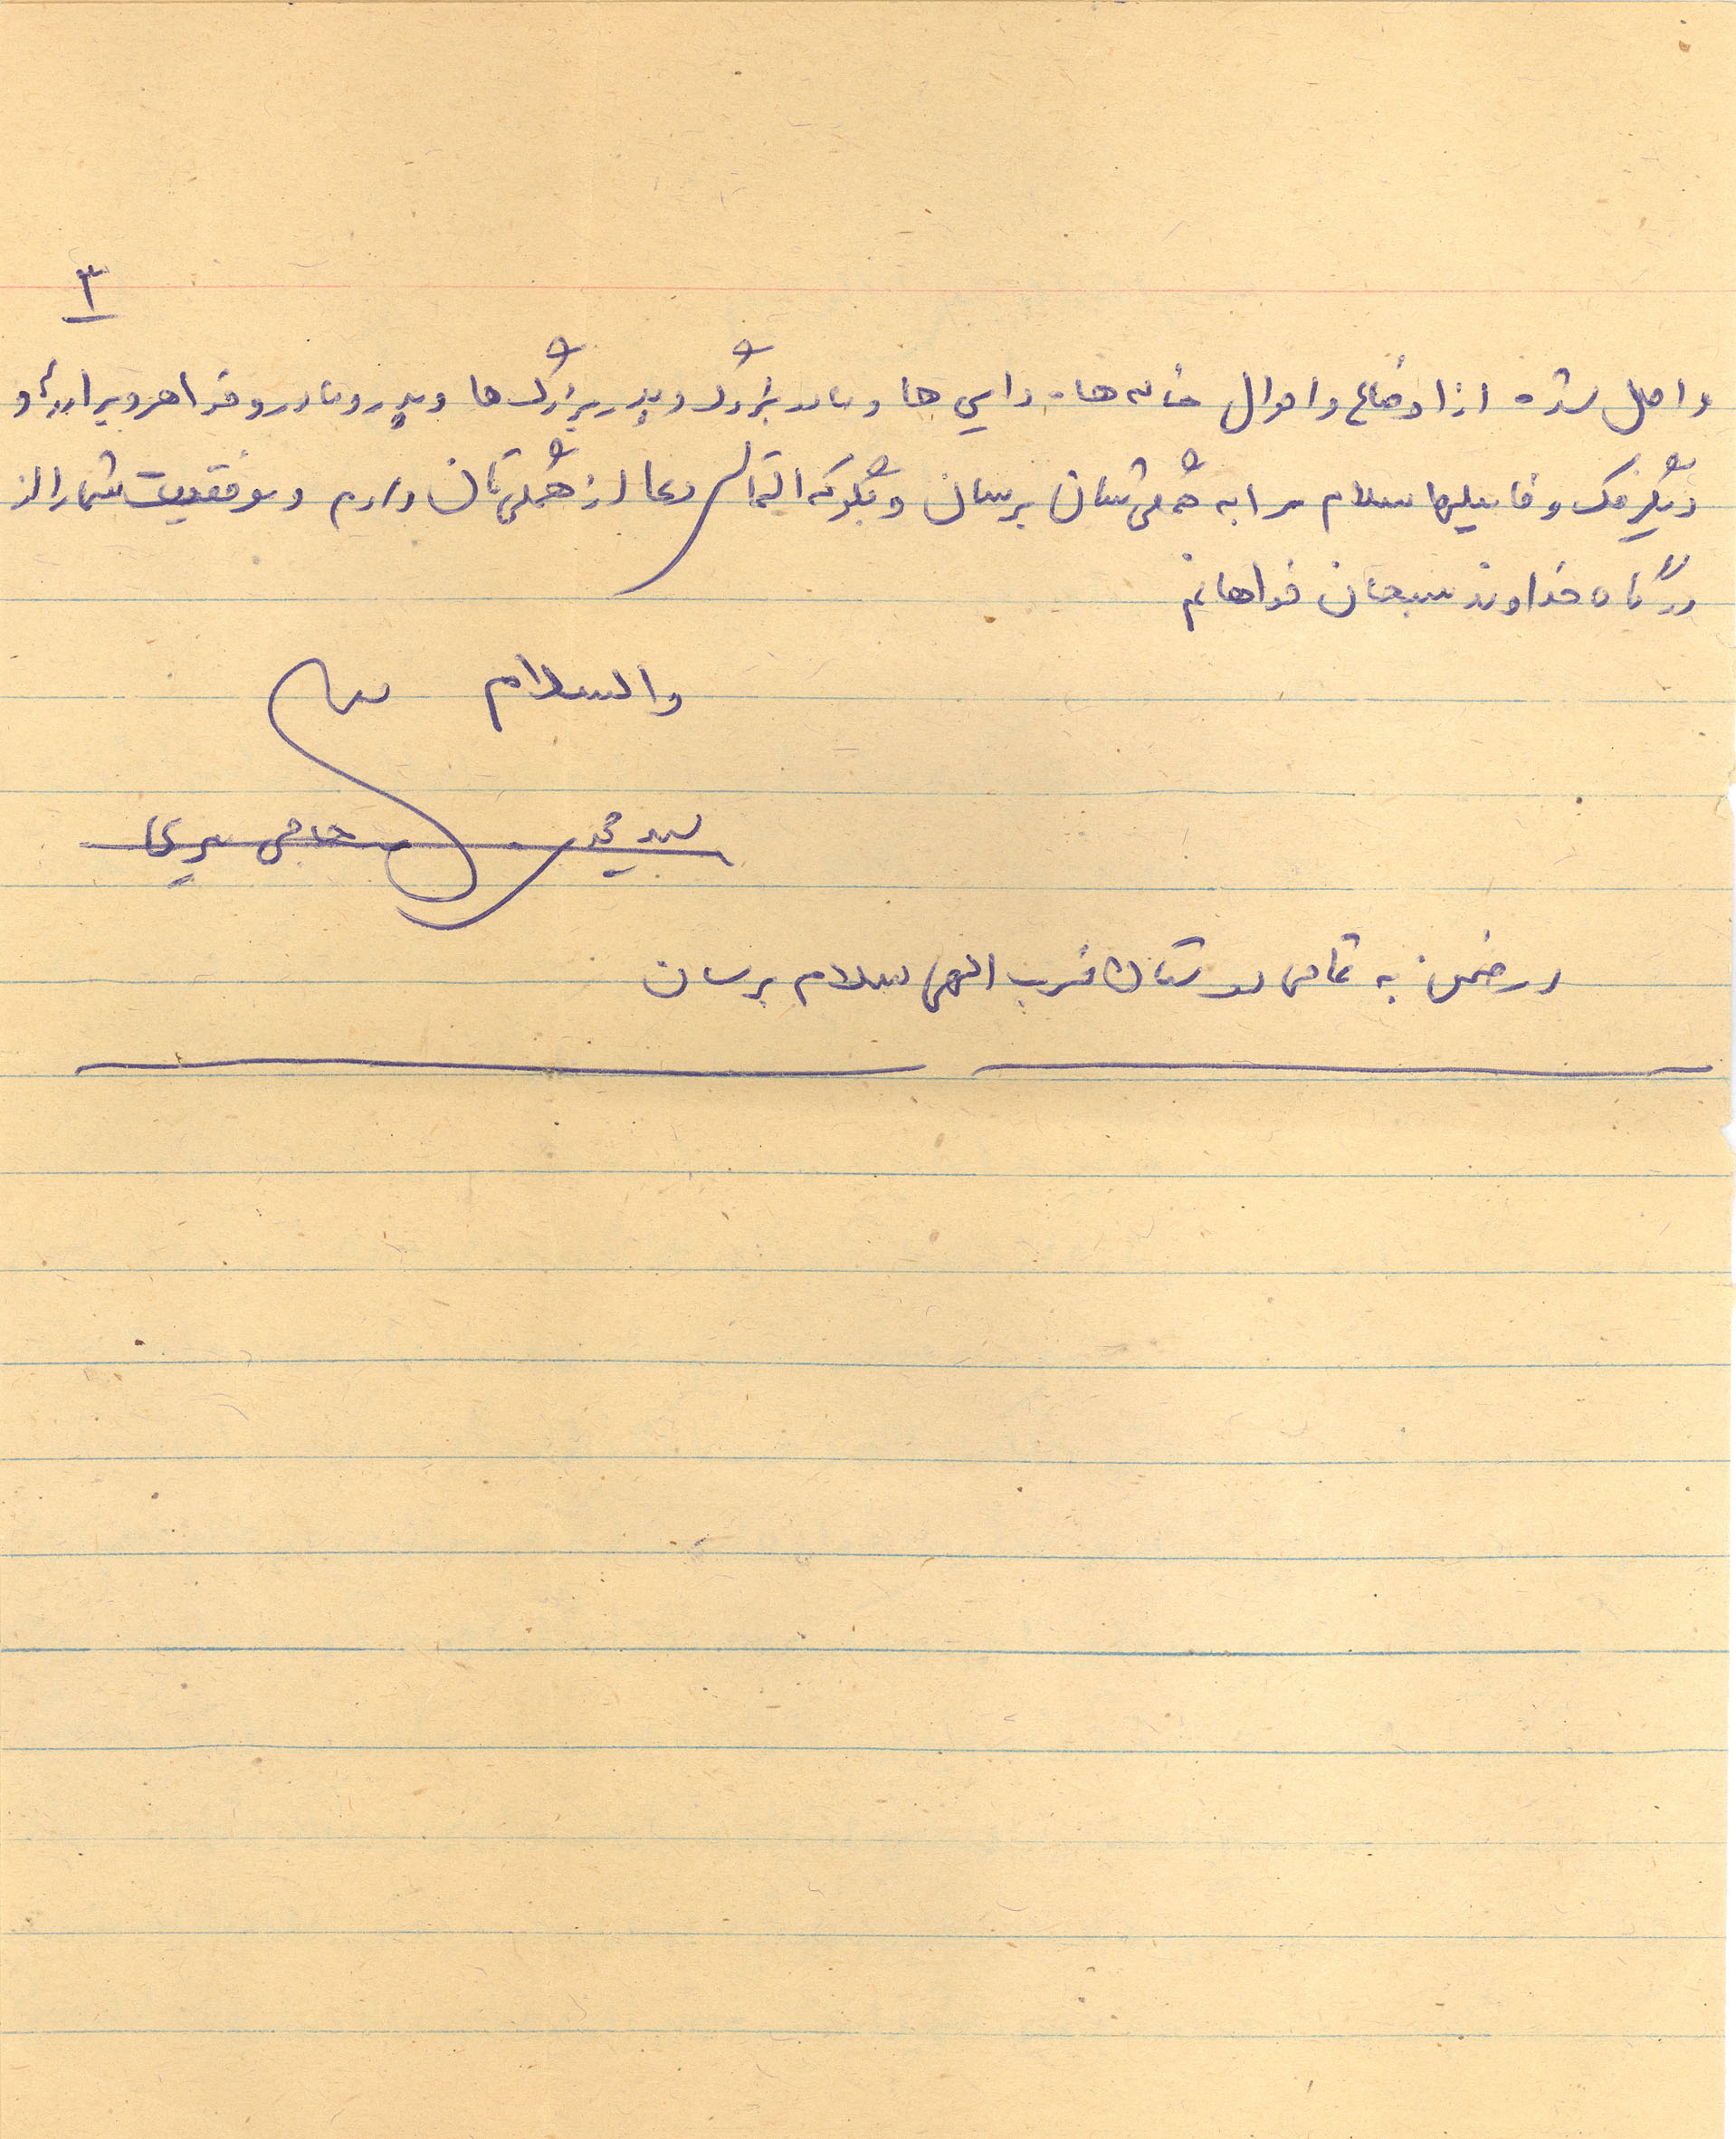 ۳
واصل شده از اوضاع و احوال خاله ها. دایی ها و مادر بزرگ و پدر بزرگ ها و پدر و مادر و خواهر و برادر و
دیگر فک و فامیلها سلام مرا به همگی شان برسان و بگو که التماس دعا از همگی تان دارم و موفقیت شما را از
درگاه خداوند سبحان خواهانم
والسلام
سید محمد حاجی میری
در ضمن به تمامی دوستان حزب الهی سلام برسان